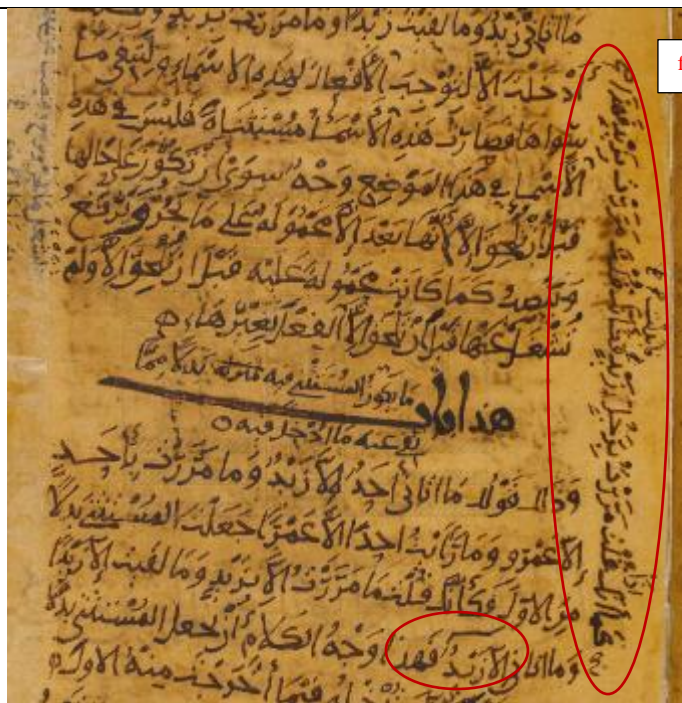 ما اتاني زيد وما لقيت زيدا وما مررت بزيد
أدخلت الا لتوجب الأفعال لهذه الاسماء ولتنفي ما
سواها فصارت هذه الأسماء مستثناة فليس في هذه
الأسماء في هذا الموضع وجه سوى أن تكون على حالها
قبل أن تلحق الا لأنها بعد الا محمولة على ما يجر ويرفع
وينصب كما كانت محمولة عليه قبل ان تلحق الا ولم
تشغل عنها قبل ان تلحق الا الفعل بغيرها
هذا باب
ما يكون المستثنى فيه بدلا مما
نفي عنه ما ادخل فيه
وذلك قولك ما اتاني احد الا زيد وما مررت بأحد
إلا عمرو وما رأيت احدا الا عمرا جعلت المستثنى بدلا
من الاول فكأنك قلت ما مررت الا بزيد وما لقيت الا زيدا
وما اتاني الا زيد فهذا وجه الكلام أن تجعل المستثنى بدلا
فيما أخرجت منه الاول
كما انك اذا قلت مررت برجل زيد فكأنك قلت مررت بزيد فهذا
f